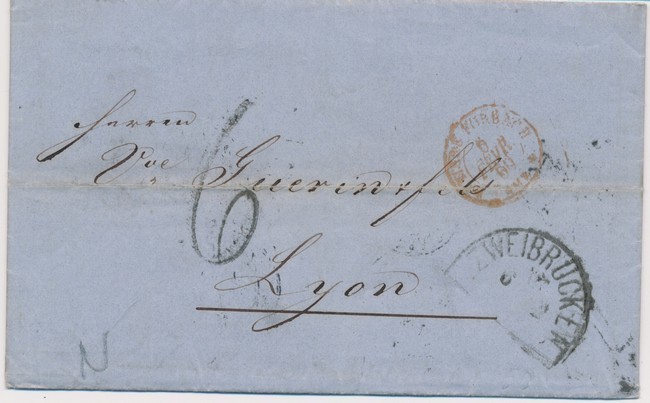 Herren
Vve Guerin & fils
Lyon
6
FORBACH
6
60
ZWEIBRÜCKEN
6
N